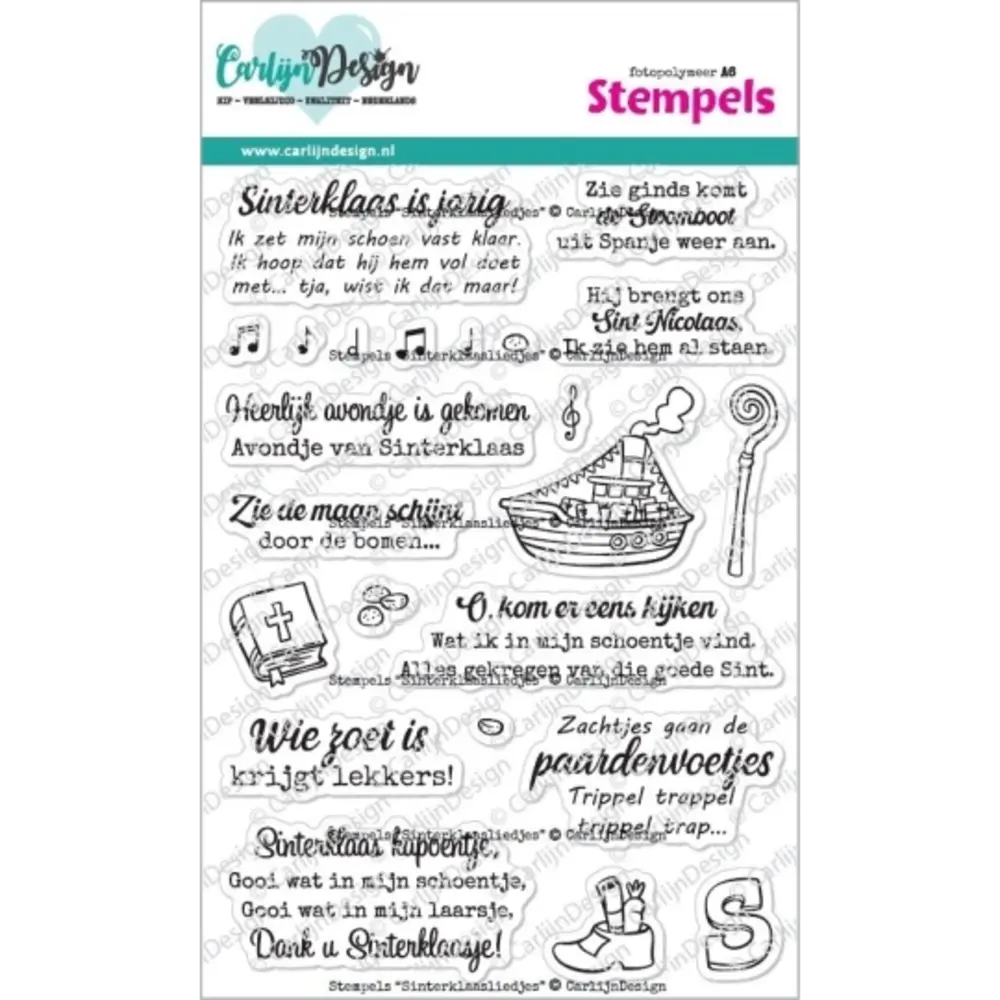 Carlijn Design
HIP ~ VEELZIJDIG ~ KWALITEIT ~ NEDERLANDS
fotopolymeer A6
Stempels
www.carlijndesign.nl
Sinterklaas is jarig
Ik zet mijn schoen vast klaar.
Ik hoop dat hij hem vol doet
met... tja, wist ik dat maar!
Zie ginds komt
de Stoomboot
uit Spanje weer aan.
Stempels "Sinterklaasliedjes" © CarlijnDesign
Hij brengt ons
Sint Nicolaas.
Ik zie hem al staan.
Stempels "Sinterklaasliedjes" © CarlijnDesign
Heerlijk avondje is gekomen
Avondje van Sinterklaas
Zie de maan schijnt
door de bomen...
Stempels "Sinterklaasliedjes" © CarlijnDesign
O, kom er eens kijken
Wat ik in mijn schoentje vind.
Alles gekregen van die goede Sint.
Stempels "Sinterklaasliedjes" © CarlijnDesign
Wie zoet is
krijgt lekkers!
Zachtjes gaan de
paardenvoetjes
Trippel trappel
trippel trap...
Stempels "Sinterklaasliedjes" © CarlijnDesign
Sinterklaas kapoentje,
Gooi wat in mijn schoentje,
Gooi wat in mijn laarsje,
Dank u Sinterklaasje!
S
Stempels "Sinterklaasliedjes" © CarlijnDesign